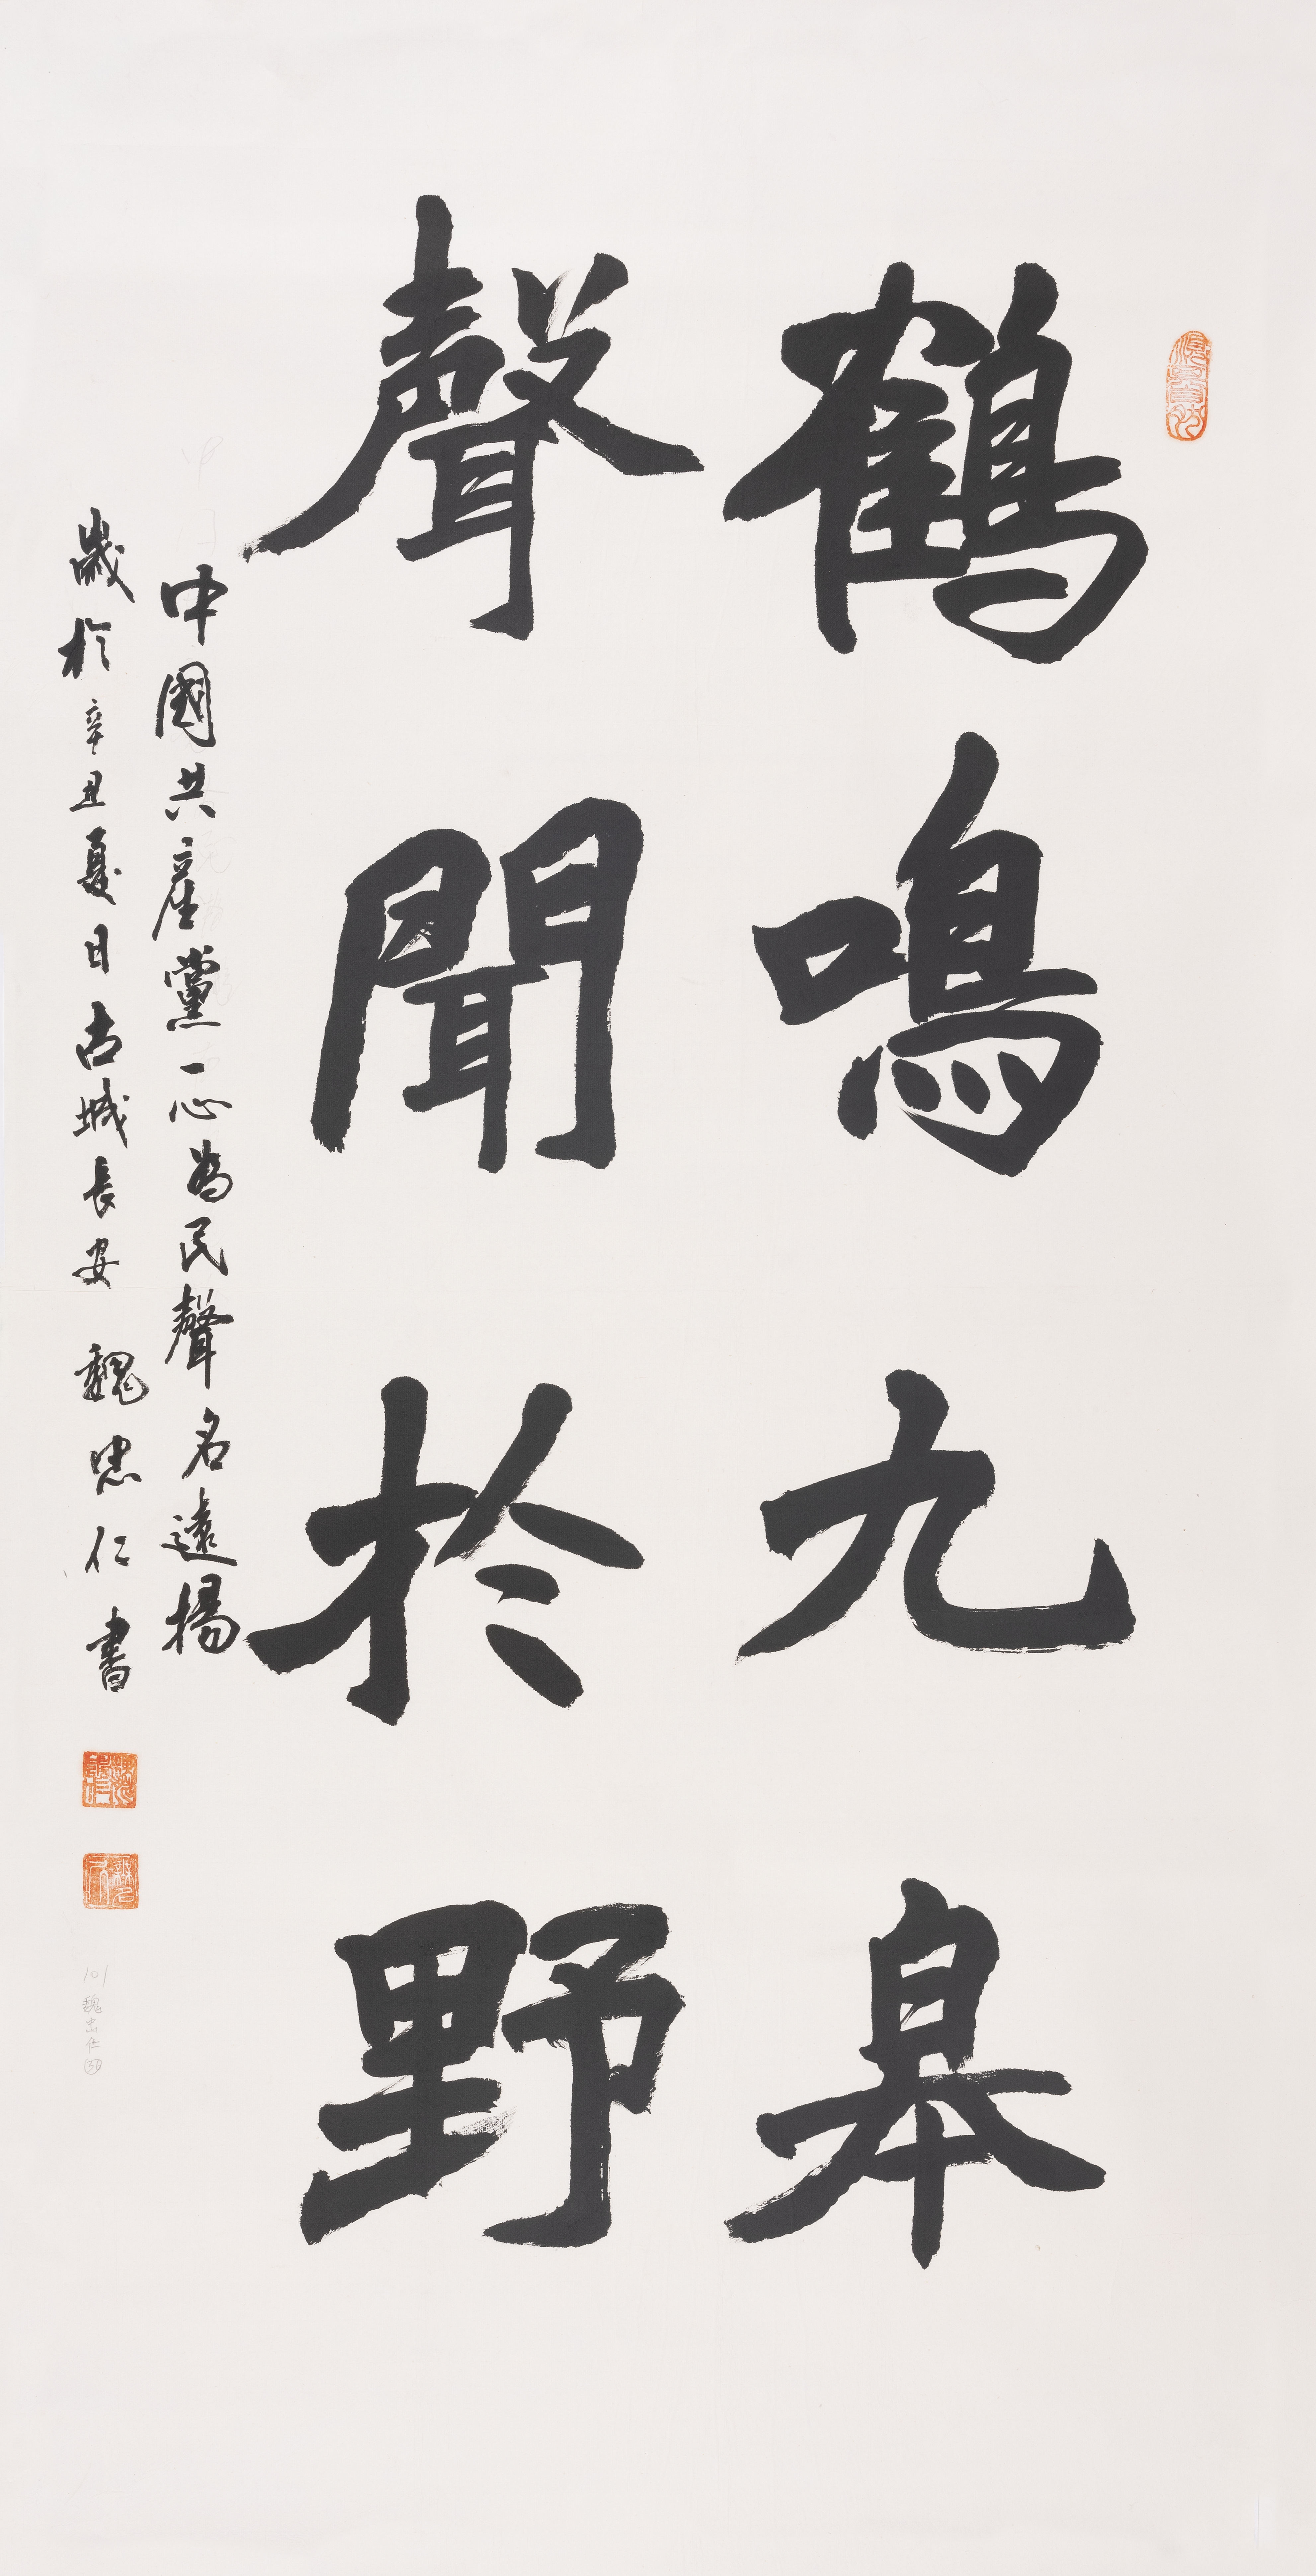 鶴鳴九皋
聲聞於野
中國共產黨一心為民聲名遠揚
歲於辛丑夏日古城長安 魏忠仁書
101魏忠仁